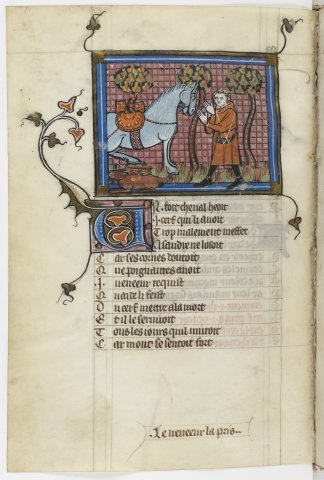 Un fort cheual heoit
.i. cerf qui li auoit
Trop malement meffet
Assaudre ne losoit
Car ses cornes doutoit
Que poignantes auoit
.i. veneeur requist
Quaide li feist
Du cerf mettre a la mort
Et il le seruiroit
Tous les iours quil viuroit
Car mout se sentoit fort
.Le veneeur la pris.